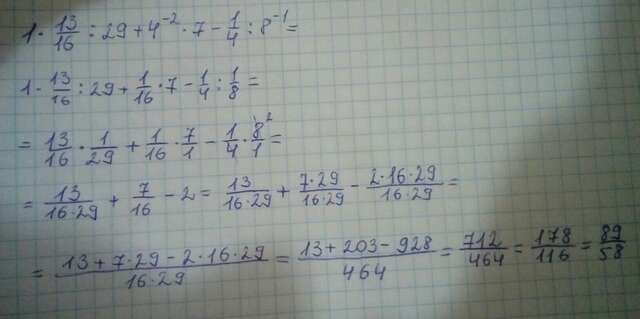 1 · 13/16 : 29 + 4⁻² · 7 − 1/4 : 8⁻¹ =
1 · 13/16 : 29 + 1/16 · 7 − 1/4 : 1/8 =
= 13/16 · 1/29 + 1/16 · 7/1 − 1/4 · 8²/1 =
= 13/16·29 + 7/16 − 2 = 13/16·29 + 7·29/16·29 − 2·16·29/16·29 =
= 13 + 7·29 − 2·16·29/16·29 = 13 + 203 − 928/464 = 712/464 = 178/116 = 89/58